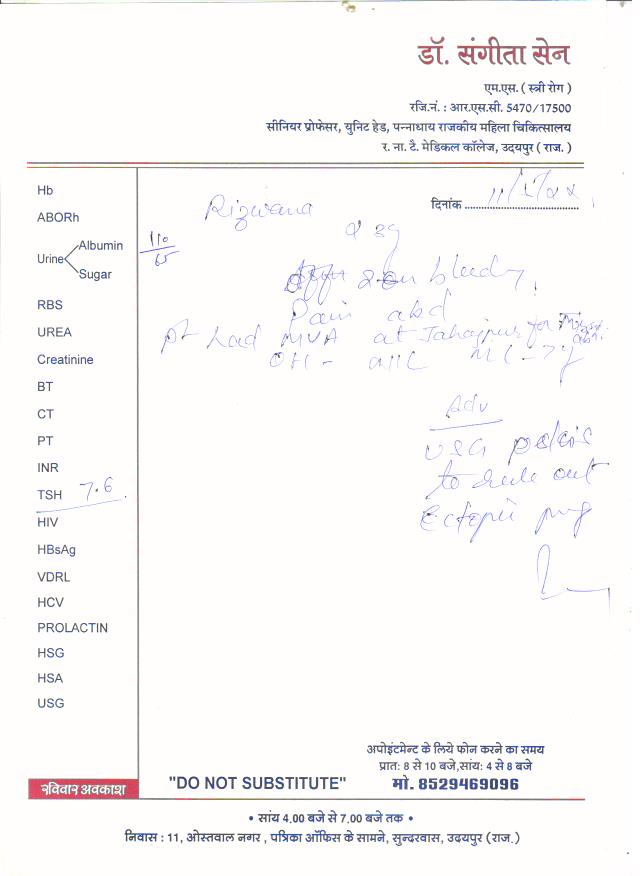 डॉ. संगीता सेन
एम.एस. ( स्त्री रोग )
रजि.नं. : आर.एस.सी. 5470/17500
सीनियर प्रोफेसर, युनिट हेड, पन्नाधाय राजकीय महिला चिकित्सालय
र. ना. टै. मेडिकल कॉलेज, उदयपुर ( राज. )
दिनांक
Rizwana
110/65
bleeding
Pain abd
pt had MVA at Jahazpur for
OH - MC-7y
Adv
USG pelvis
to rule out
Ectopic preg
Hb
ABORh
Urine Albumin
Sugar
RBS
UREA
Creatinine
BT
CT
PT
INR
TSH 7.6
HIV
HBsAg
VDRL
HCV
PROLACTIN
HSG
HSA
USG
रविवार अवकाश
"DO NOT SUBSTITUTE"
अपोइंटमेन्ट के लिये फोन करने का समय
प्रात: 8 से 10 बजे,सांय: 4 से 8 बजे
मो. 8529469096
• सांय 4.00 बजे से 7.00 बजे तक •
निवास : 11, ओस्तवाल नगर , पत्रिका ऑफिस के सामने, सुन्दरवास, उदयपुर (राज.)